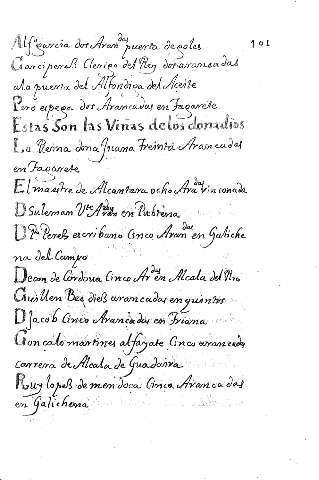 Alfº garcia dos Aranᵈᵃˢ puerta de goles 101
Garci perez Clerigo del Rey dos aransadas
a la puerta del Alfondiga del Aceite
Pero espega dos Arancadas en Tagarete
Estas Son las Viñas de los donadios
La Reyna dona Juana Treinta Arancadas
en Tagarete
El maestre de Alcantara ocho Aranᵈᵃˢ
D Suleman Vᵗᵉ Aranᵈᵃˢ en Pachena
D Pº Perez escribano Cinco Aranᵈᵃˢ en Galiche
na del Campo
Dean de Cordoua Cinco Arᵈᵃˢ en Alcala del Rio
Guillen Bec diess arancadas en quintos
D Jacob Cinco Arancadas en Triana
Goncalo martines alfayate Cinco arancadas
carrera de Alcala de Guadaira
Ruy lopez de mendoca Cinco Arancadas
en Galichena